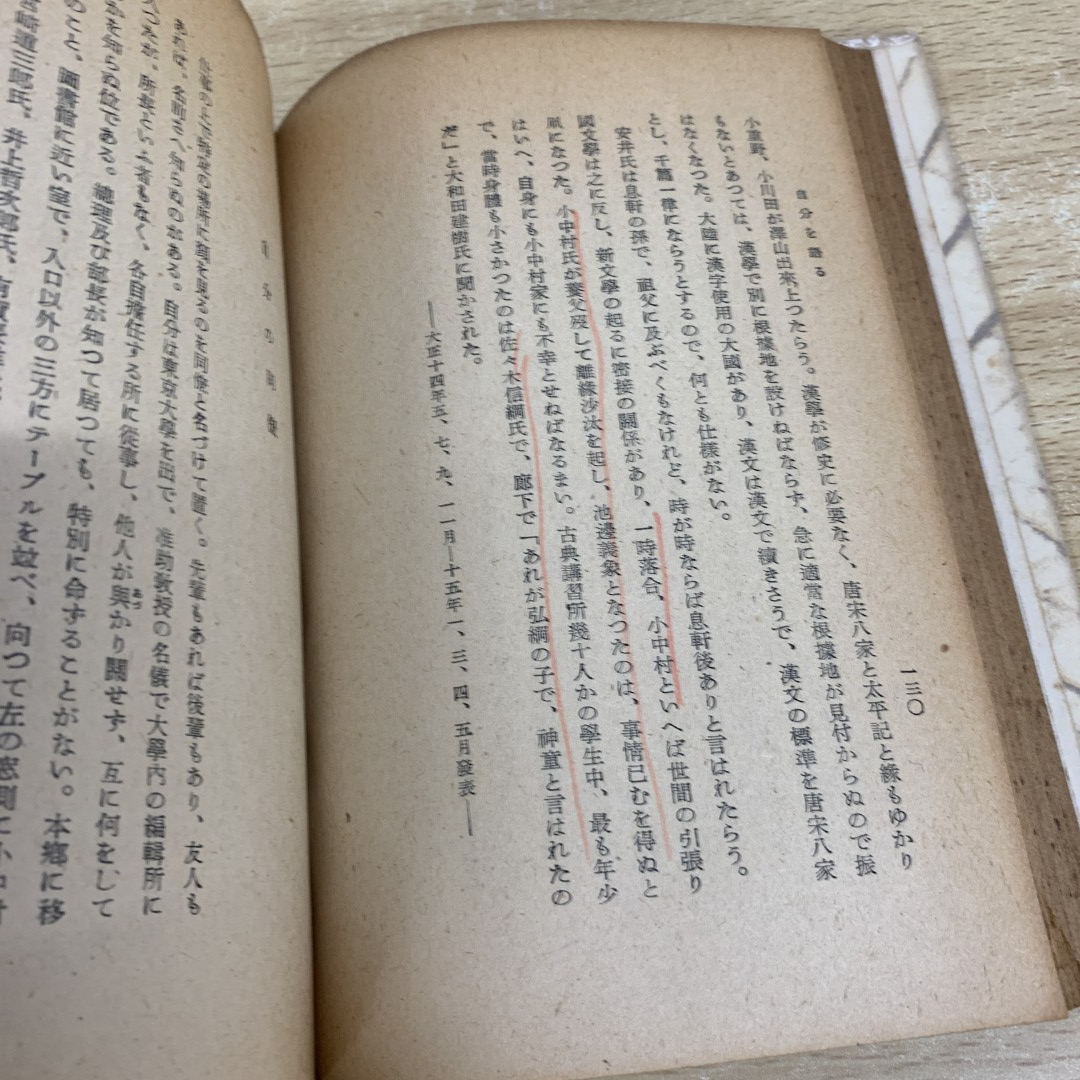 一三〇
自分を語る
小重野、小川田が澤山出來上つたらう。漢學が修史に必要なく、唐宋八家と太平記と緣もゆかり
もないとあつては、漢學で別に根據地を設けねばならず、急に適當な根據地が見付からぬので振
はなくなつた。大陸に漢字使用の大國があり、漢文は漢文で續きさうで、漢文の標準を唐宋八家
とし、千篇一律にならうとするので、何とも仕樣がない。
安井氏は息軒の孫で、祖父に及ぶべくもなけれど、時が時ならば息軒後ありと言はれたらう。
國文學は之に反し、新文學の起るに密接の關係があり、一時落合、小中村といへば世間の引張り
凧になつた。小中村氏が養父歿して離緣沙汰を起し、池邊義象となつたのは、事情已むを得ぬと
はいへ、自身にも小中村家にも不幸とせねばなるまい。古典講習所幾十人かの學生中、最も年少
で、當時身體も小さかつたのは佐々木信綱氏で、廊下で「あれが弘綱の子で、神童と言はれたの
だ」と大和田建樹氏に聞かされた。
――大正十四年五、七、九、一一月―十五年一、三、四、五月發表――
の同僚
仕事の上で の場所に を るのを同僚と名づけて置く。先輩もあれば後輩もあり、友人も
あれば、名前さへ知らぬのがある。自分は東京大學を出で、准助教授の名儀で大學內の編輯所に
つたが、所長といふ者もなく、各自擔任する所に從事し、他人が與かり關せず、互に何をして
かを知らぬ位である。總理及び部長が知つて居つても、特別に命ずることがない。本鄕に移
のこと、圖書館に近い室で、入口以外の三方にテーブルを竝べ、向つて左の窓側に小中村
宮崎道三郎氏、井上哲次郎氏、有賀長雄